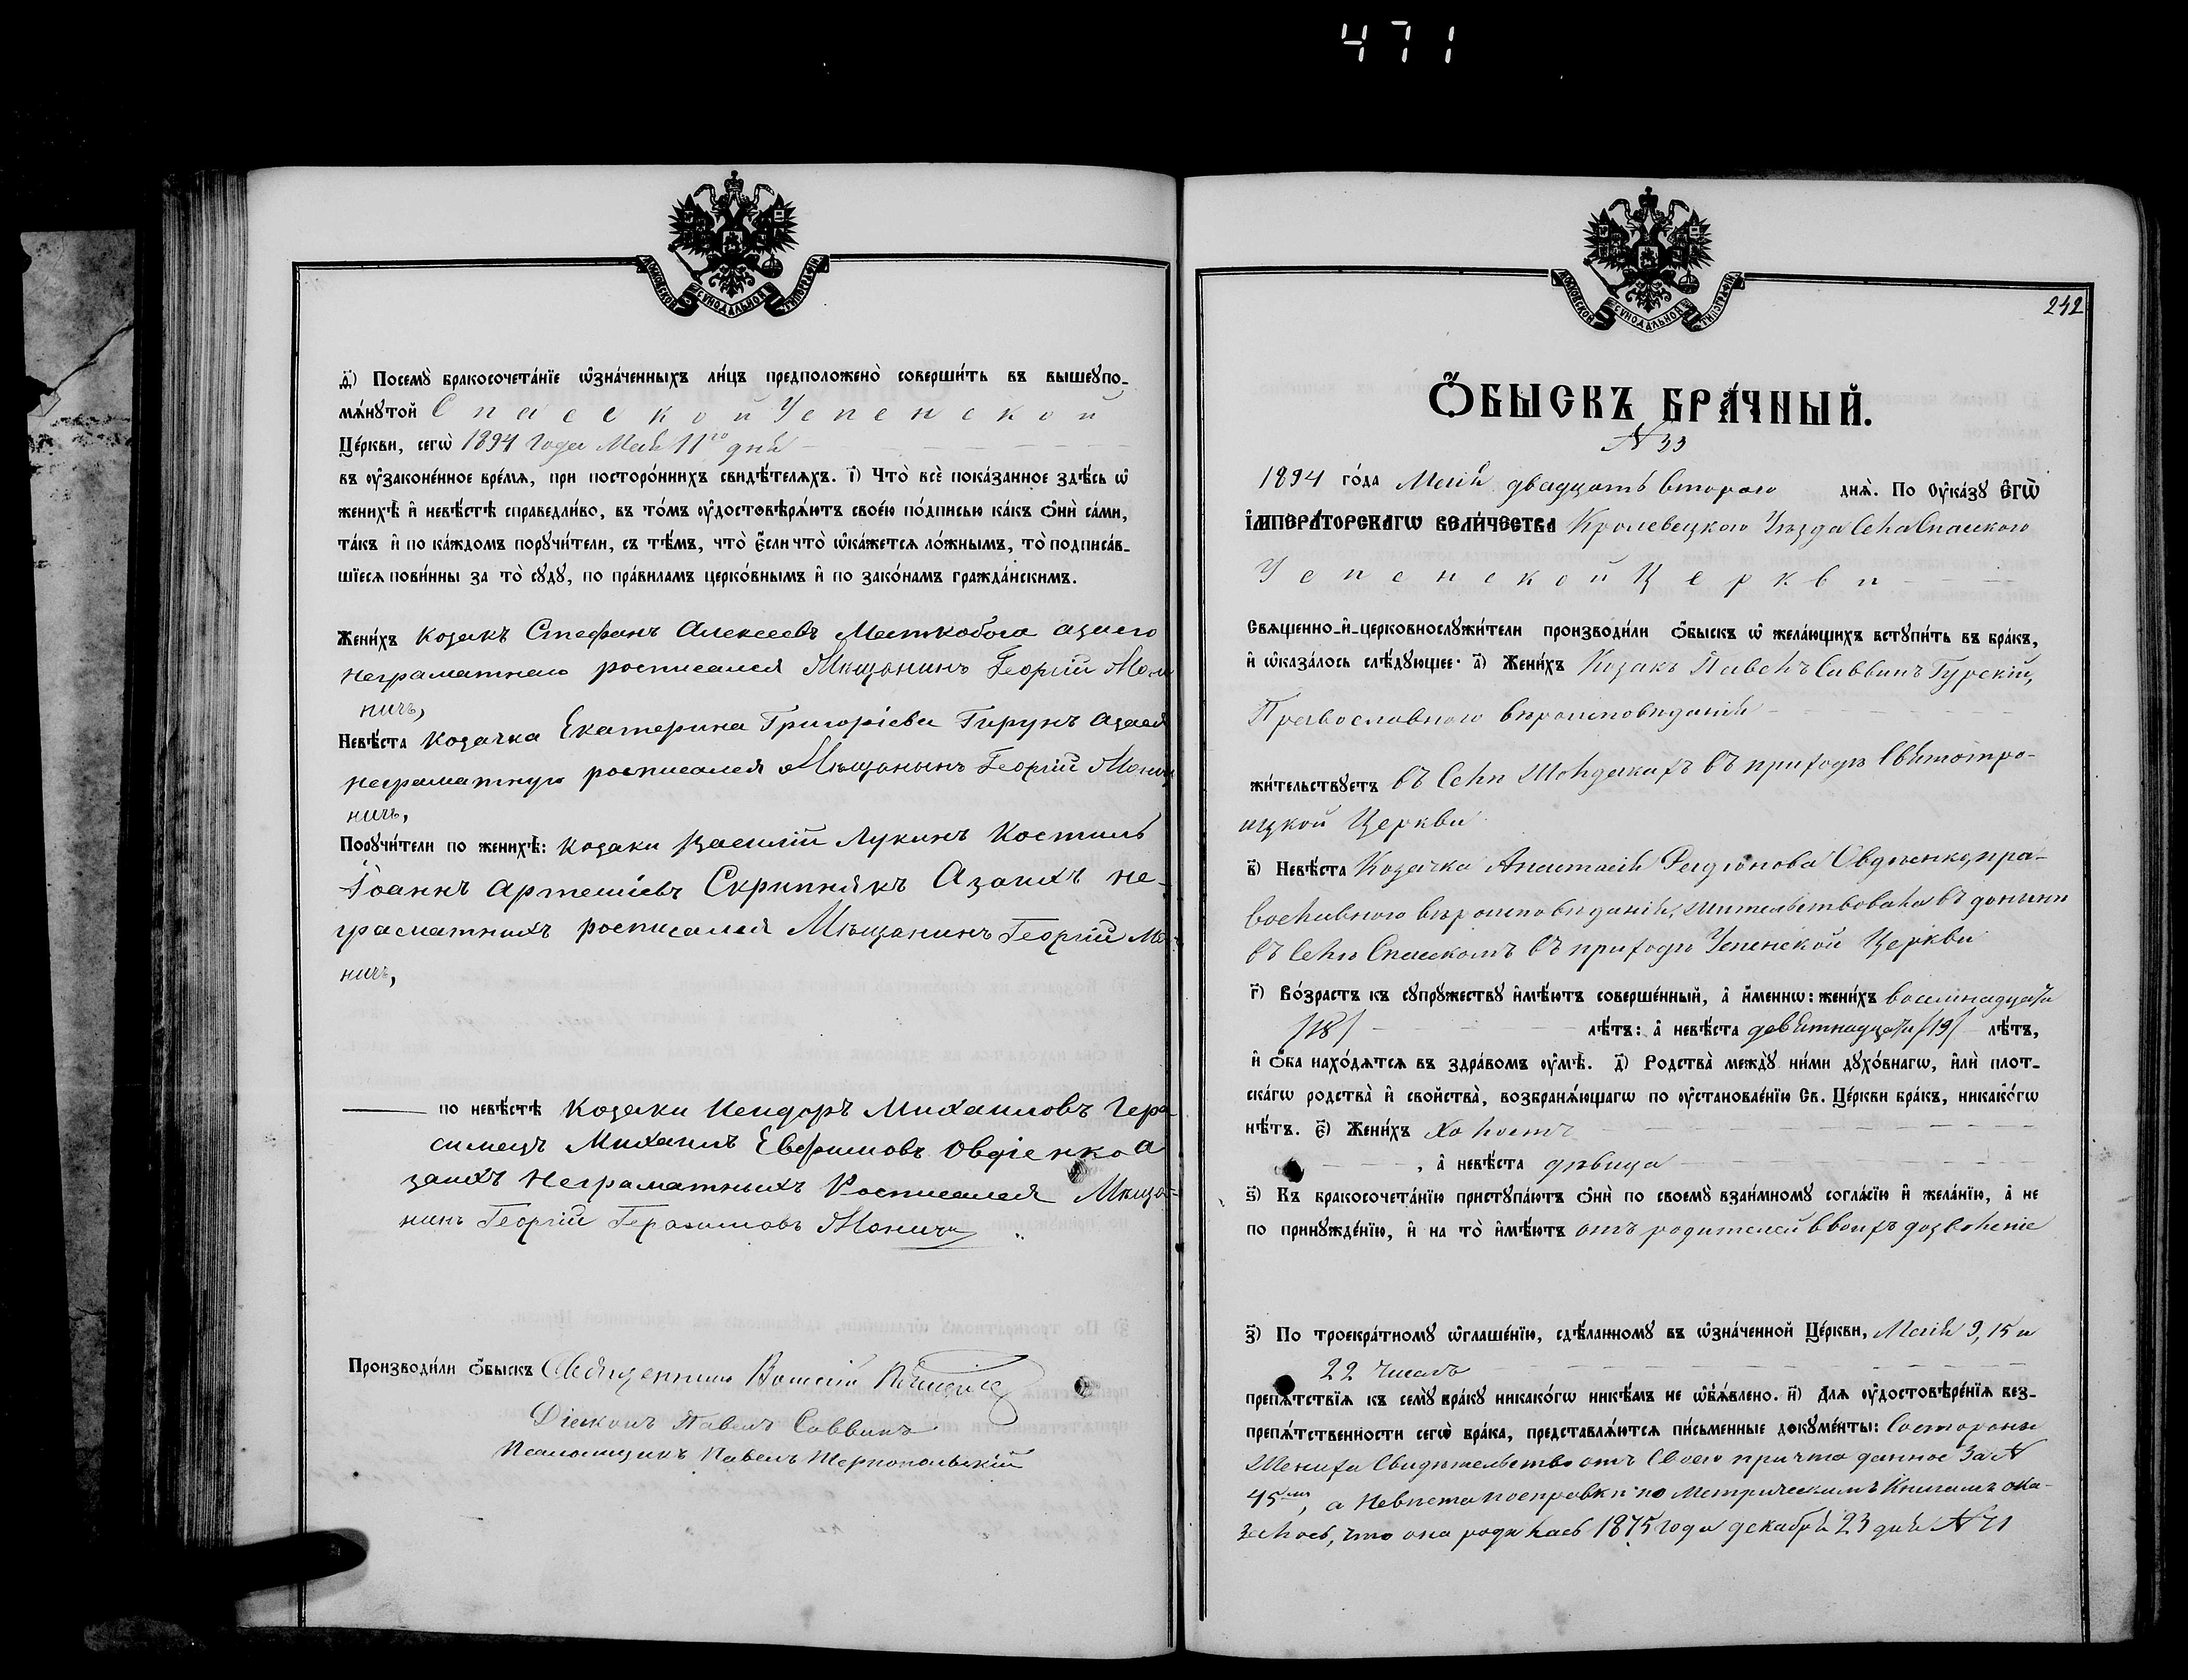 471
МОСКОВСКОЙ СѴНОДАЛЬНОЙ ТИПОГРАФІИ
д҃і) Посемꙋ̀ бракосочета́нїе ѡ҆зна́ченныхъ ли́цъ предположено̀ соверши́ть въ вышеꙋпо-
мѧ́нꙋтой Спасской Успенской
Це́ркви, сегѡ̀ 1894 года Маія 11го дня
въ ᲂу҆законе́нное вре́мѧ, при посторо́ннихъ свидѣ́телѧхъ. і҃) Что̀ всѐ пока́занное здѣ́сь ѡ҆
женихѣ̀ и҆ невѣ́стѣ справедли́во, въ то́мъ ᲂу҆достовѣрѧ́ютъ свое́ю по́дписью ка́къ ѻ҆нѝ са́ми,
та́къ и҆ по ка́ждомъ порꙋчи́тели, съ тѣ́мъ, что̀ є҆́сли что̀ ѡ҆ка́жетсѧ ло́жнымъ, то̀ подписа́в-
шїесѧ пови́нны за то̀ сꙋдꙋ̀, по пра́виламъ церко́внымъ и҆ по зако́намъ гражда́нскимъ.
Жени́хъ Козакъ Стефанъ Алексеевъ Маткобога азаего
неграматнаго росписался Мѣщанинъ Георгій Мони
ничъ,
Невѣ́ста Козачка Екатерина Григоріева Гирунъ азаея
неграматную росписался Мѣщанынъ Георгій Мони
ничъ,
Порꙋчи́тели по женихѣ̀: Козаки Василій Лукинъ Костиль
Іоаннъ Артеміевъ Скрипнякъ Азаихъ не-
граматныхъ росписался Мѣщанинъ Георгій Мо-
ничъ,
по невѣ́стѣ Козаки Исидоръ Михаиловъ Гера
симецъ Михаилъ Евфимовъ Овдіенко а
заихъ Неграматныхъ Росписался Мѣща-
нинъ Георгій Герасимовъ Моничъ
Производи́ли ѻ҆́быскъ Священникъ Василій
Діаконъ Павелъ Саввинъ
Псаломщикъ Павелъ Тернопольскій
МОСКОВСКОЙ СѴНОДАЛЬНОЙ ТИПОГРАФІИ
242
Ѻ҆́БЫСКЪ БРА́ЧНЫЙ.
№ 33
1894 го́да Маія двадцать второго днѧ̀. По Оу҆ка́зꙋ Є҆гѡ̀
І҆мпера́торскагѡ Вели́чества Кролевецкого Уѣзда Села Спаского
Успенской Церкви
Свѧще́нно-и҆-церковнослꙋжи́тели производи́ли ѻ҆́быскъ ѡ҆ жела́ющихъ встꙋпи́ть въ бра́къ,
и҆ ѡ҆каза́лось слѣ́дꙋющее: а҃) Жени́хъ Козакъ Павелъ Саввинъ Гурскій,
Православного вѣроисповѣданія
жи́тельствꙋетъ въ Селѣ Шолдакахъ въ приходѣ Святотро-
ицкой Церкви
в҃) Невѣ́ста Козачка Анастасія Радіонова Овдіенко, пра-
вославного вѣроисповѣданія, жительствовала въ донынѣ
въ Селѣ Спаскомъ въ приходѣ Успенской Церкви
г҃) Во́зрастъ къ сꙋпрꙋ́жествꙋ и҆мѣ́ютъ соверше́нный, а҆ и҆́менно: жени́хъ восимнадцати
/18/ лѣ́тъ: а҆ невѣ́ста девятнадцати /19/ лѣ́тъ,
и҆ ѻ҆́ба нахо́дѧтсѧ въ здра́вомъ ᲂу҆мѣ̀. д҃) Родства̀ междꙋ̀ ни́ми дꙋхо́внагѡ, и҆лѝ плот-
ска́гѡ родства̀ и҆ свойства̀, возбранѧ́ющагѡ по ᲂу҆становле́нїю Св. Це́ркви бра́къ, никако́гѡ
нѣ́тъ. є҃) Жени́хъ Холостъ
, а҆ невѣ́ста дѣвица
ѕ҃) Къ бракосочета́нїю пристꙋпа́ютъ ѻ҆нѝ по своемꙋ̀ взаи́мномꙋ согла́сїю и҆ жела́нїю, а҆ не
по принꙋжде́нїю, и҆ на то̀ и҆мѣ́ютъ отъ родителей Своихъ дозволеніе
з҃) По троекра́тномꙋ ѡ҆глаше́нїю, сдѣ́ланномꙋ въ ѡ҆зна́ченной Це́ркви, Маія 9, 15 и
22 числъ
препѧ́тствїѧ къ семꙋ̀ бра́кꙋ никако́гѡ никѣ́мъ не ѡ҆б̾ѧ́влено. и҃) Длѧ ᲂу҆достовѣре́нїѧ без-
препѧ́тственности сегѡ̀ бра́ка, представлѧ́ютсѧ пи́сьменные докꙋме́нты: Состороны
Жениха Свидѣтельство отъ Своего причта данное За №
45, а Невѣста посправкѣ по Метрическимъ Книгамъ ока-
залось, что она родилась 1875 года декабря 23 дня № 71